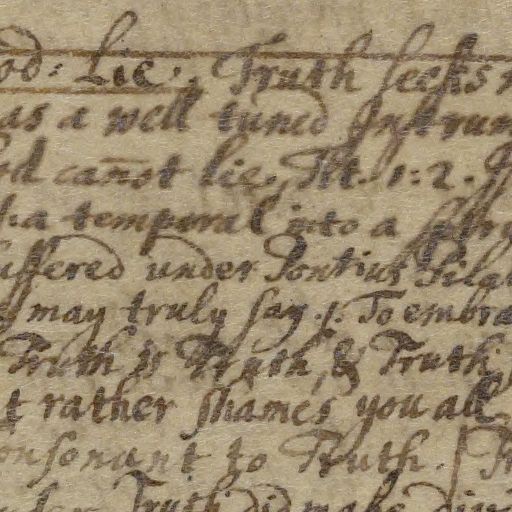 od: Lie. Truth seeks n
as a well tuned Instrum
od can̄ot lie, Tit. 1:2.
a temporal into a
uffered under Pontius Pilat
may truly say. To embra
Truth is Truth, & Truth
t rather shames you all
onsonant to Truth. Tr
Truth did make div